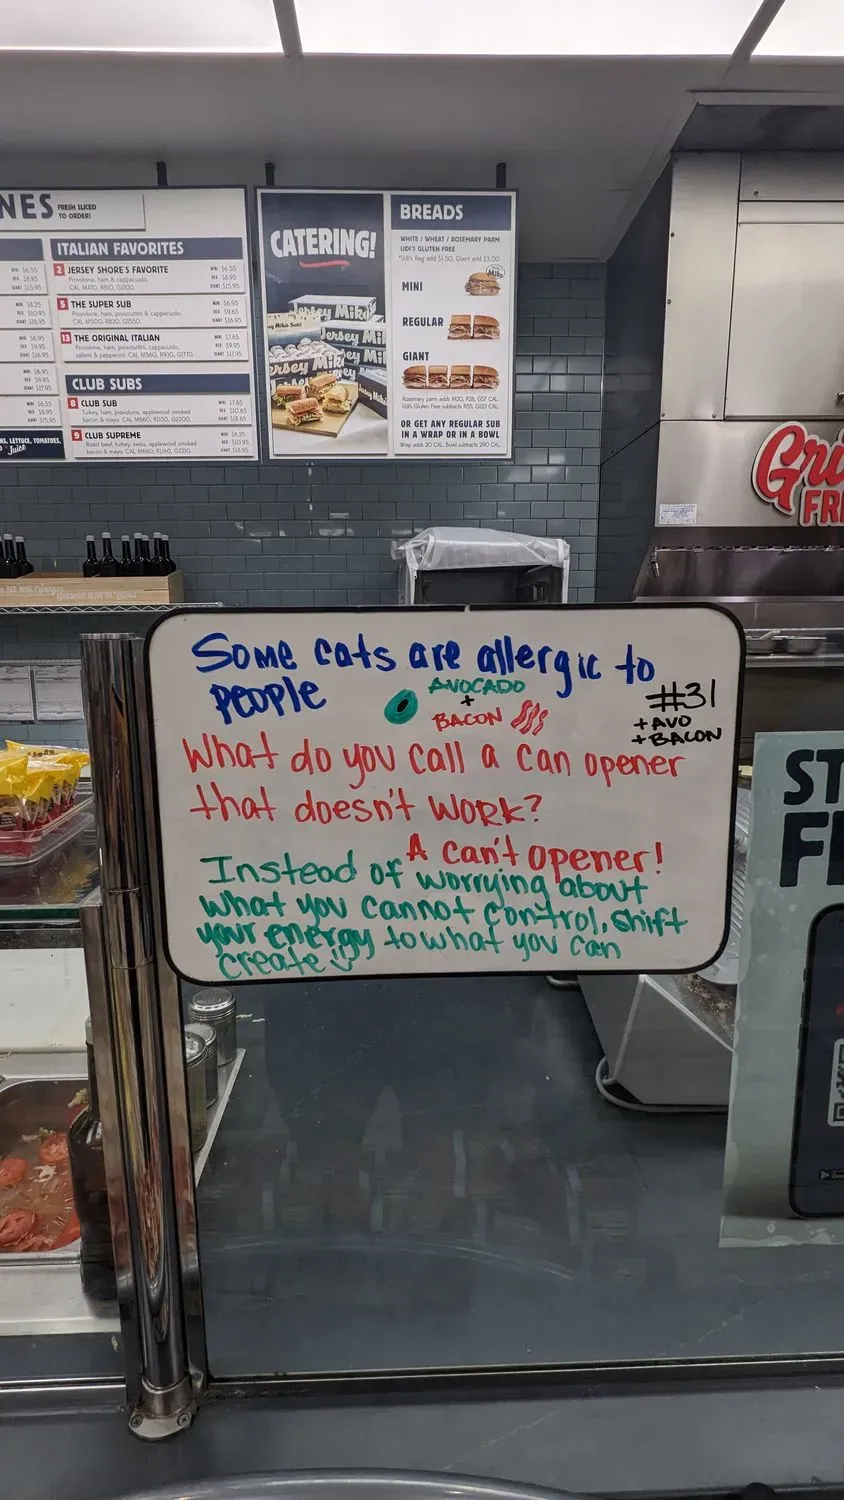 NES FRESH SLICED
TO ORDER!
ITALIAN FAVORITES
2 JERSEY SHORE'S FAVORITE
Provolone, ham & cappacuolo.
5 THE SUPER SUB
Provolone, ham, prosciuttini & cappacuolo.
13 THE ORIGINAL ITALIAN
Provolone, ham, prosciuttini, cappacuolo,
salami & pepperoni.
CLUB SUBS
8 CLUB SUB
Turkey, ham, provolone, applewood smoked
bacon & mayo.
9 CLUB SUPREME
Roast beef, turkey, swiss, applewood smoked
bacon & mayo.
LETTUCE, TOMATOES,
Juice
CATERING!
Jersey Mike
BREADS
WHITE / WHEAT / ROSEMARY PARM
UDI'S GLUTEN FREE
*Udi's Reg add $1.50, Giant add $3.00.
MINI
REGULAR
GIANT
OR GET ANY REGULAR SUB
IN A WRAP OR IN A BOWL
Wrap adds 20 CAL. Bowl subtracts 290 CAL.
Gri
FRE
Some cats are allergic to
people
AVOCADO
+
BACON
#31
+AVO
+BACON
What do you call a can opener
that doesn't work?
A can't opener!
Instead of worrying about
what you cannot control, shift
your energy to what you can
create
ST